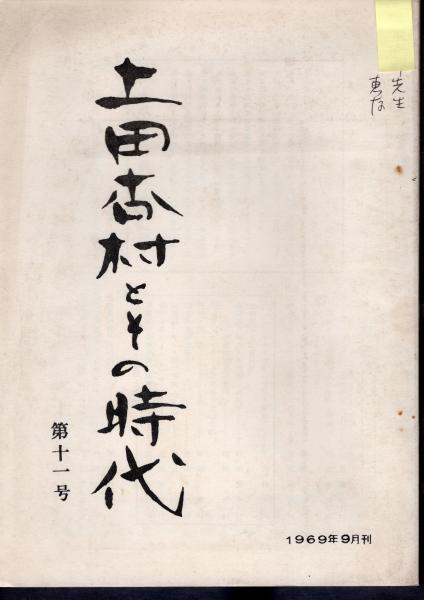 先生
恵存
土田杏村とその時代
第十一号
1969年9月刊